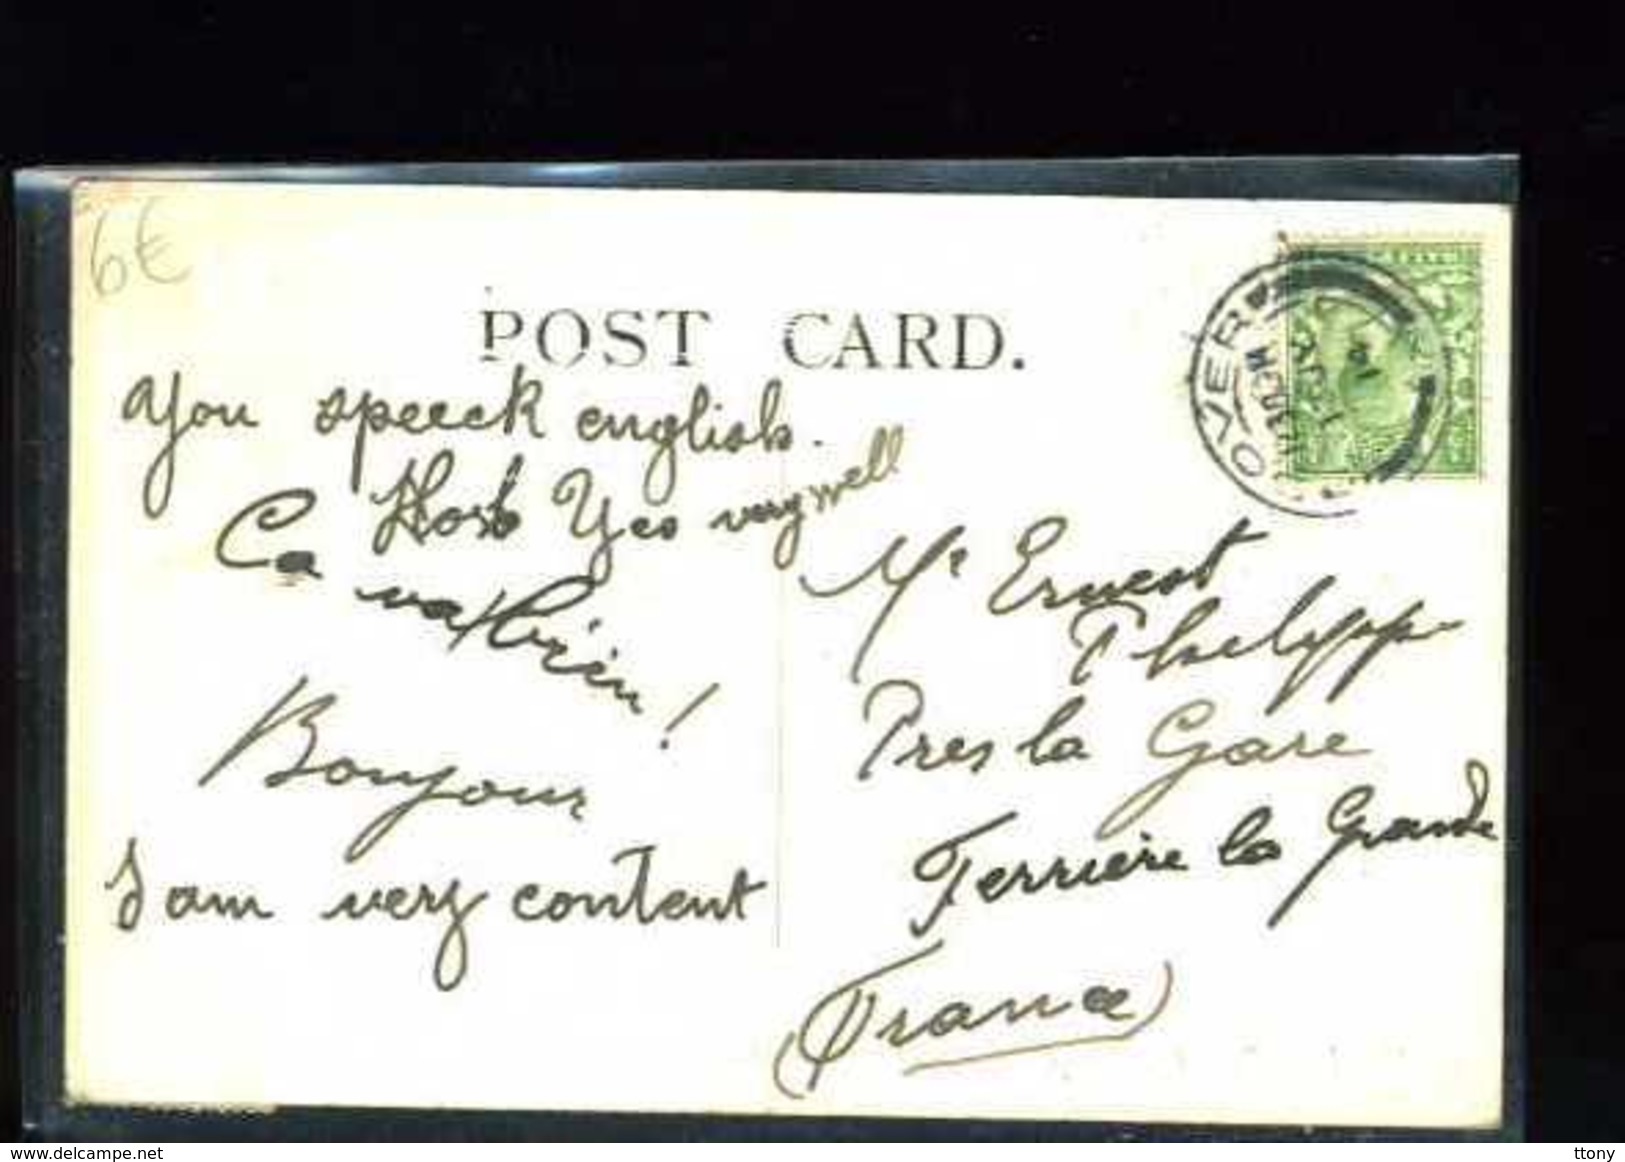 6€
POST CARD.
you speeck english.
Yes very well
Ca va bien!
Bonjour
I am very content
Mr Ernest
Phelypp
Pres la Gare
Ferriere la Grande
(France)
DOVER
delcampe.net
ttony